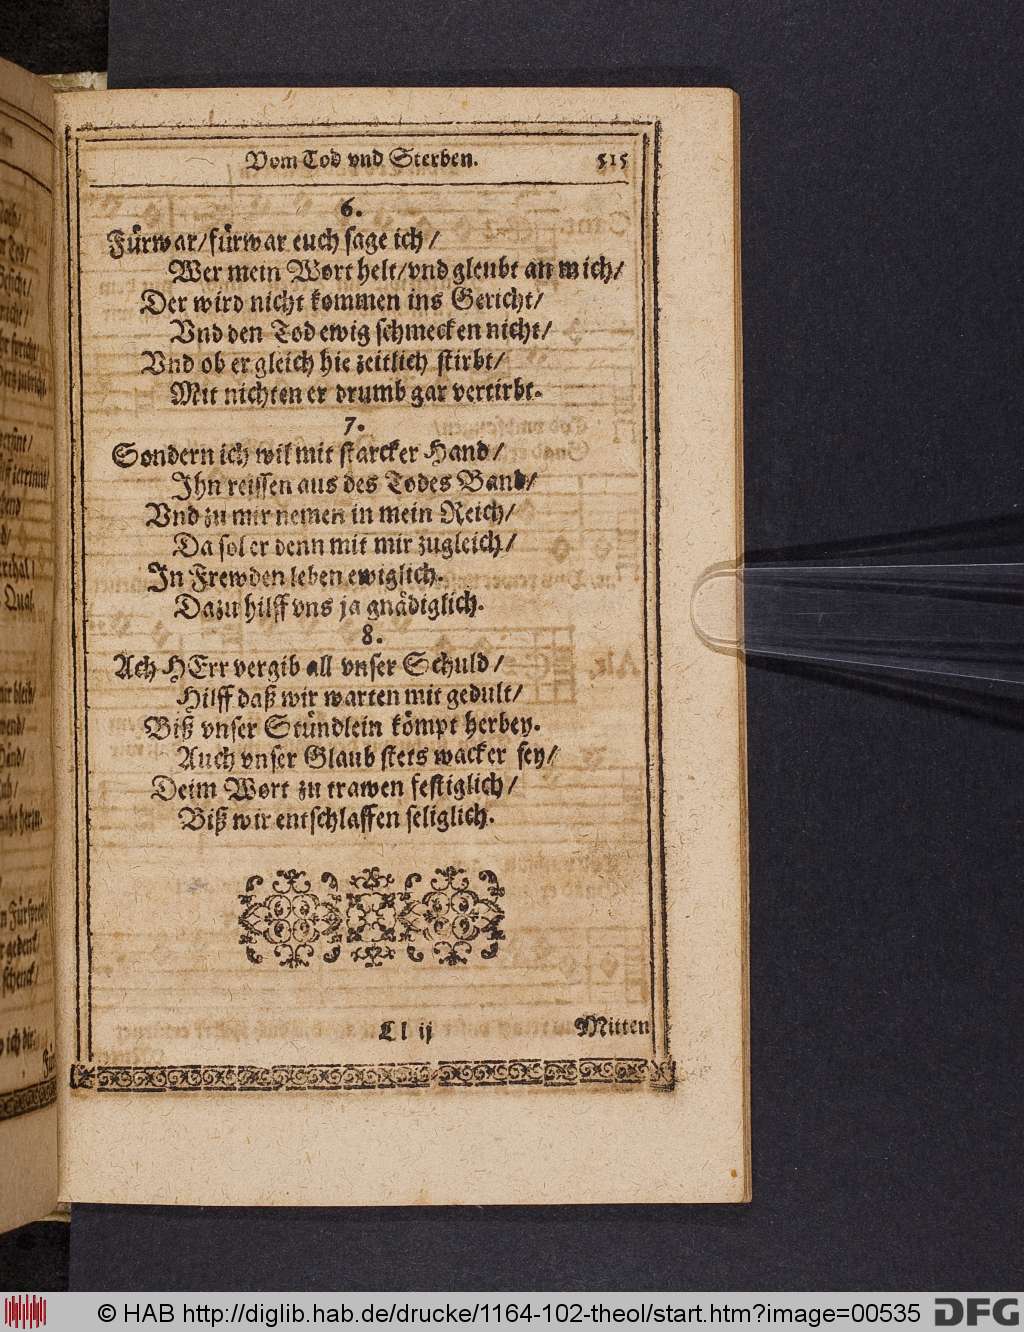 Vom Tod vnd Sterben. 515
6.
Fürwar/fürwar euch sage ich/
Wer mein Wort helt/vnd gleubt an mich/
Der wird nicht kommen ins Gericht/
Vnd den Tod ewig schmecken nicht/
Vnd ob er gleich hie zeitlich stirbt/
Mit nichten er drumb gar vertirbt.
7.
Sondern ich wil mit starcker Hand/
Ihn reissen aus des Todes Band/
Vnd zu mir nemen in mein Reich/
Da sol er denn mit mir zugleich/
In Frewden leben ewiglich.
Dazu hilff vns ja gnädiglich.
8.
Ach HErr vergib all vnser Schuld/
Hilff daß wir warten mit gedult/
Biß vnser Stündlein kömpt herbey.
Auch vnser Glaub stets wacker sey/
Deim Wort zu trawen festiglich/
Biß wir entschlaffen seliglich.
Ll ij Mitten
© HAB http://diglib.hab.de/drucke/1164-102-theol/start.htm?image=00535 DFG